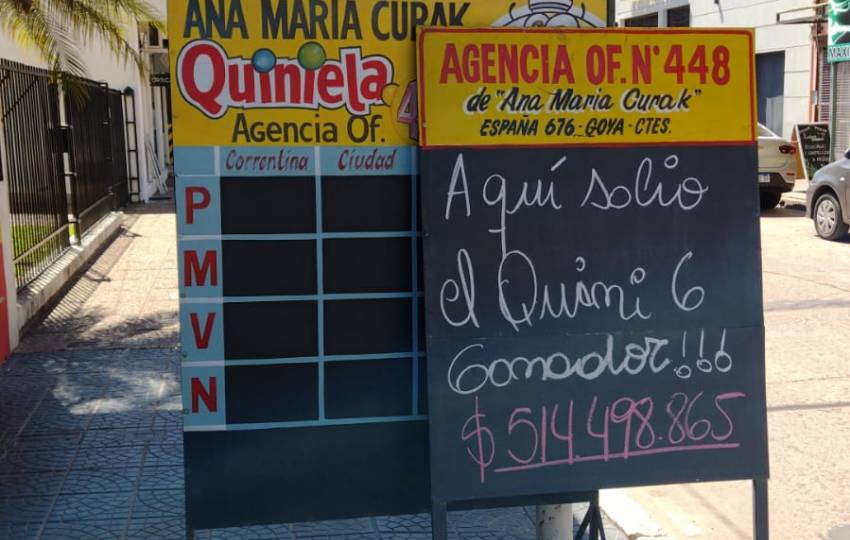 ANA MARIA CURAK
Quiniela
Agencia Of.
Correntina Ciudad
P
M
V
N
AGENCIA OF. N° 448
de "Ana Maria Curak"
ESPAÑA 676 - GOYA - CTES.
Aquí solio
el Quini 6
Ganador!!!
$514.498.865